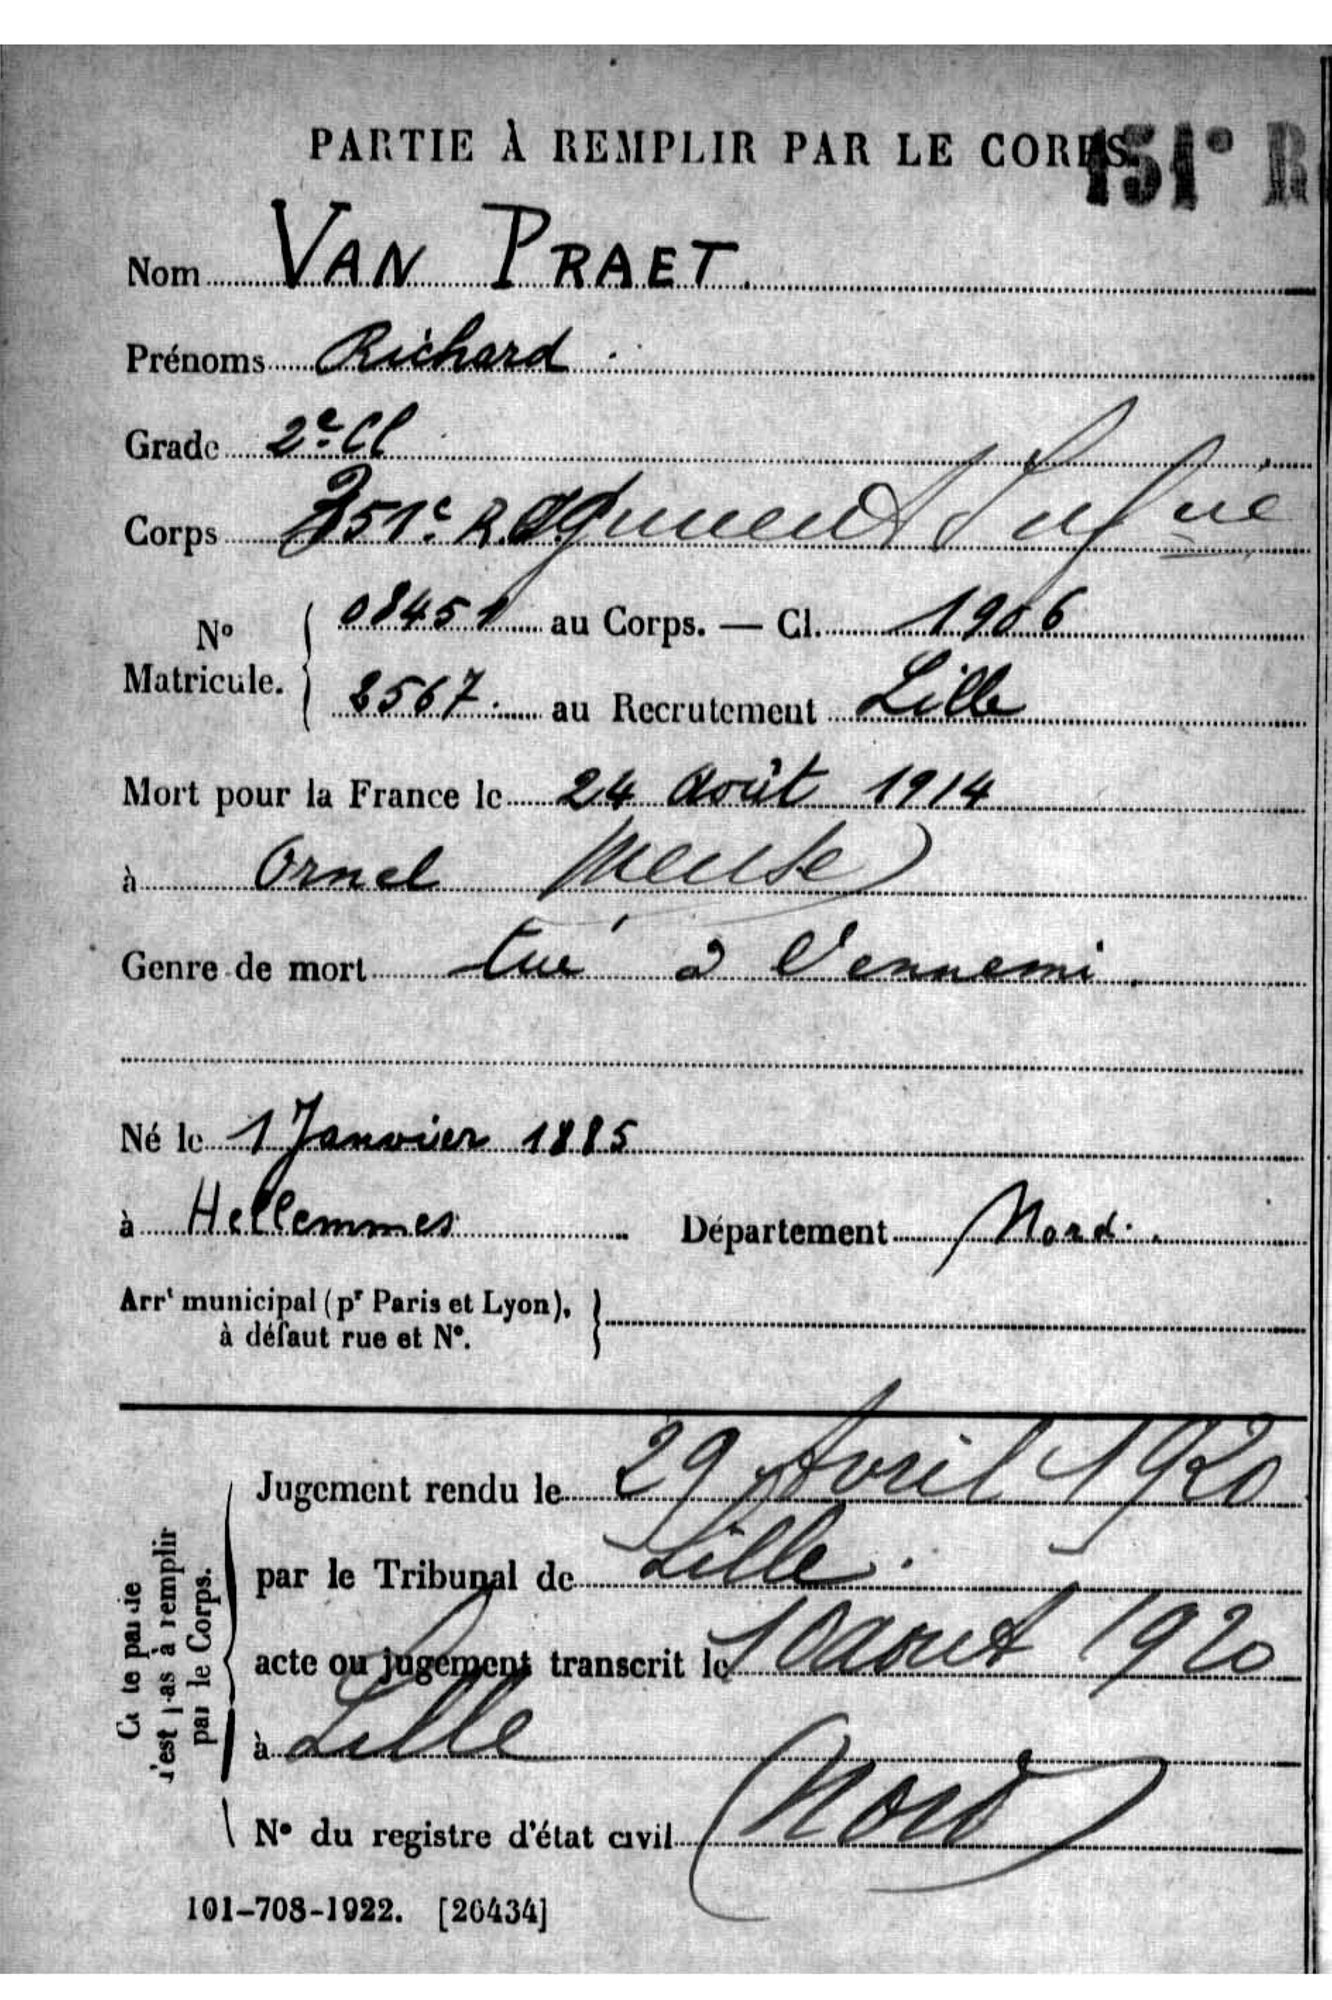 PARTIE À REMPLIR PAR LE CORPS.
151e R
Nom VAN PRAET.
Prénoms Richard
Grade 2e Cl
Corps 351e Régiment d'Infie
No Matricule. 08451 au Corps. — Cl. 1906
8567 au Recrutement Lille
Mort pour la France le 24 Août 1914
à Ornel Meuse
Genre de mort tué à l'ennemi
Né le 1 Janvier 1885
à Hellemmes Département Nord.
Arrt municipal (pr Paris et Lyon),
à défaut rue et No.
Jugement rendu le 29 Avril 1920
par le Tribunal de Lille
acte ou jugement transcrit le 10 aout 1920
à Lille
No du registre d'état civil (Nord)
Cette partie
n'est pas à remplir
par le Corps.
101-708-1922. [26434]